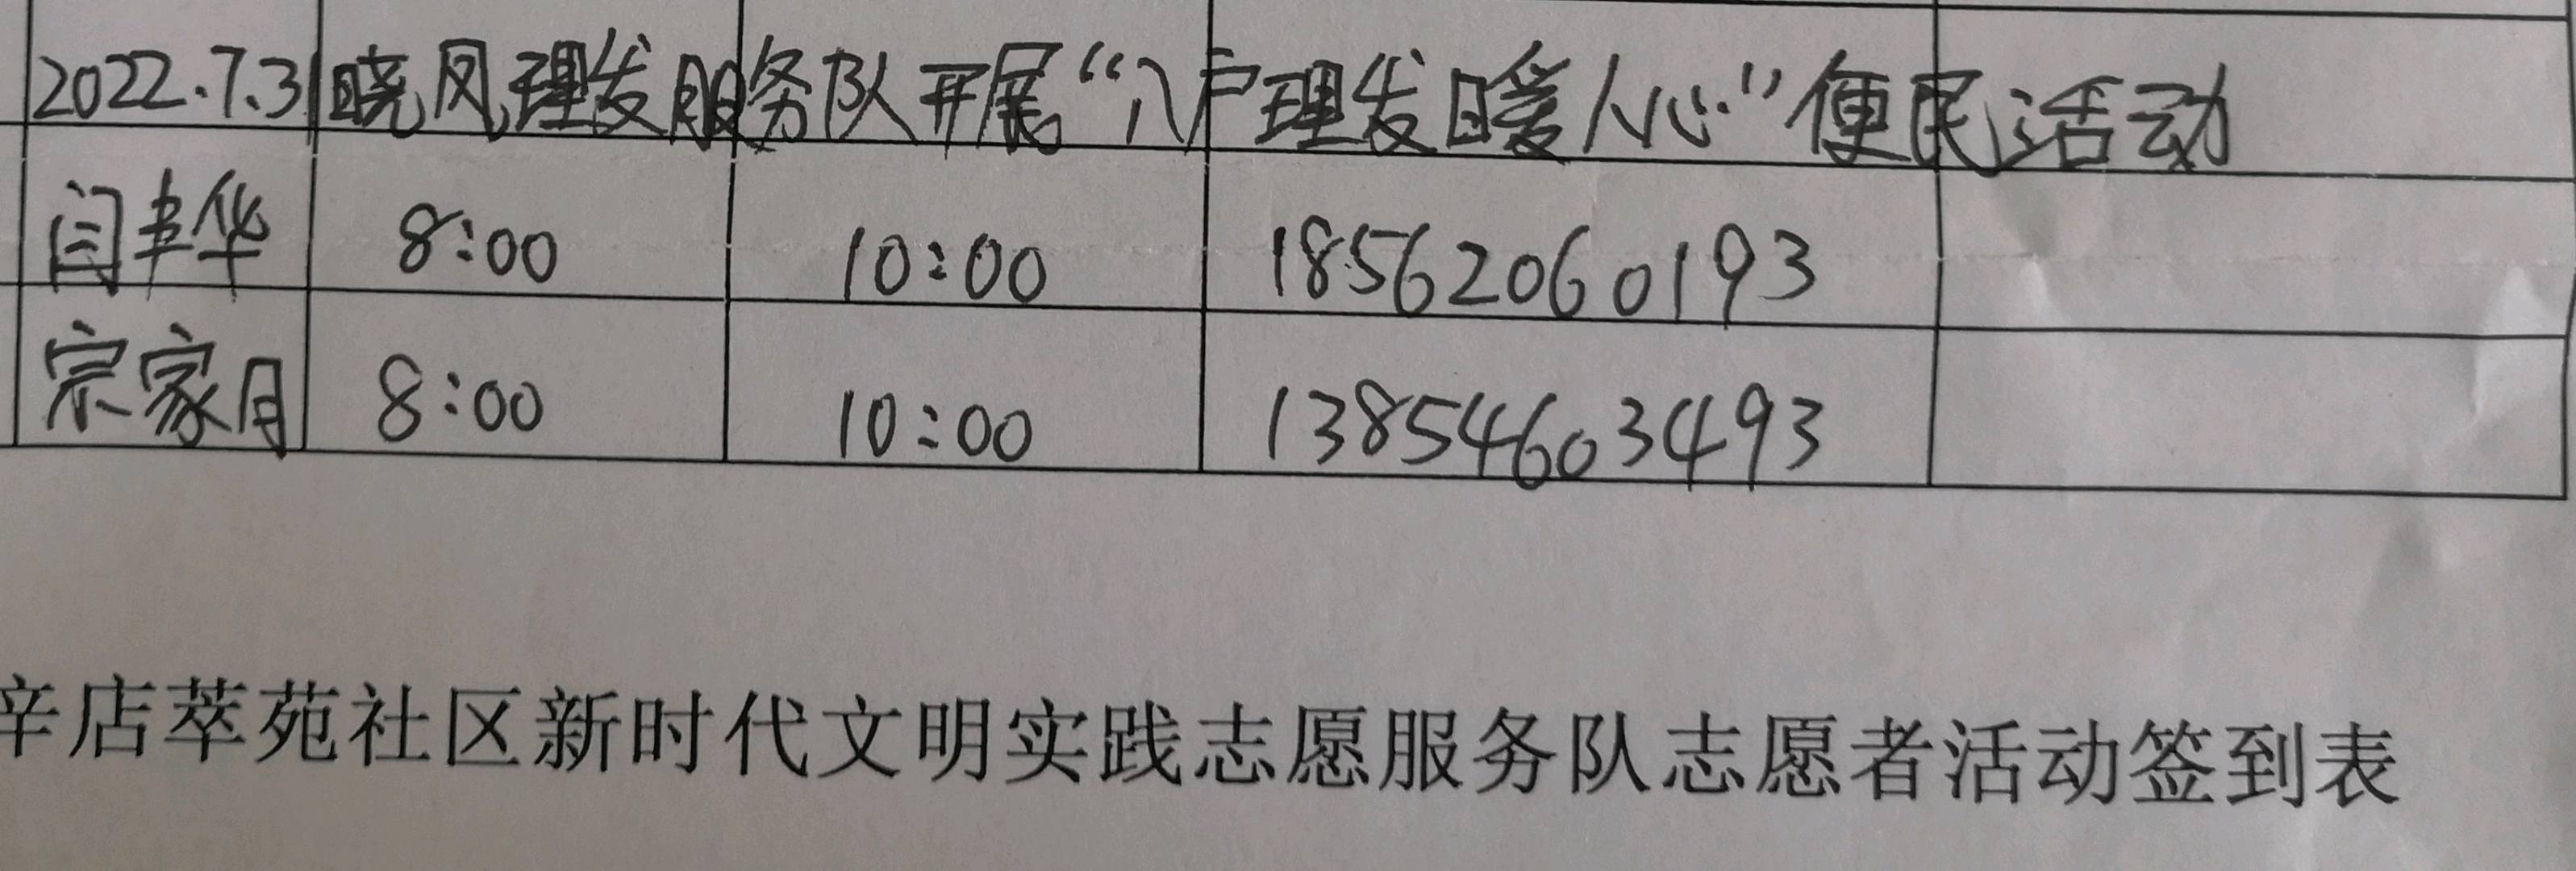 2022.7.31晓凤理发服务队开展“入户理发暖人心”便民活动
闫丰华 8:00 10:00 18562060193
宗家月 8:00 10:00 13854603493
辛店萃苑社区新时代文明实践志愿服务队志愿者活动签到表